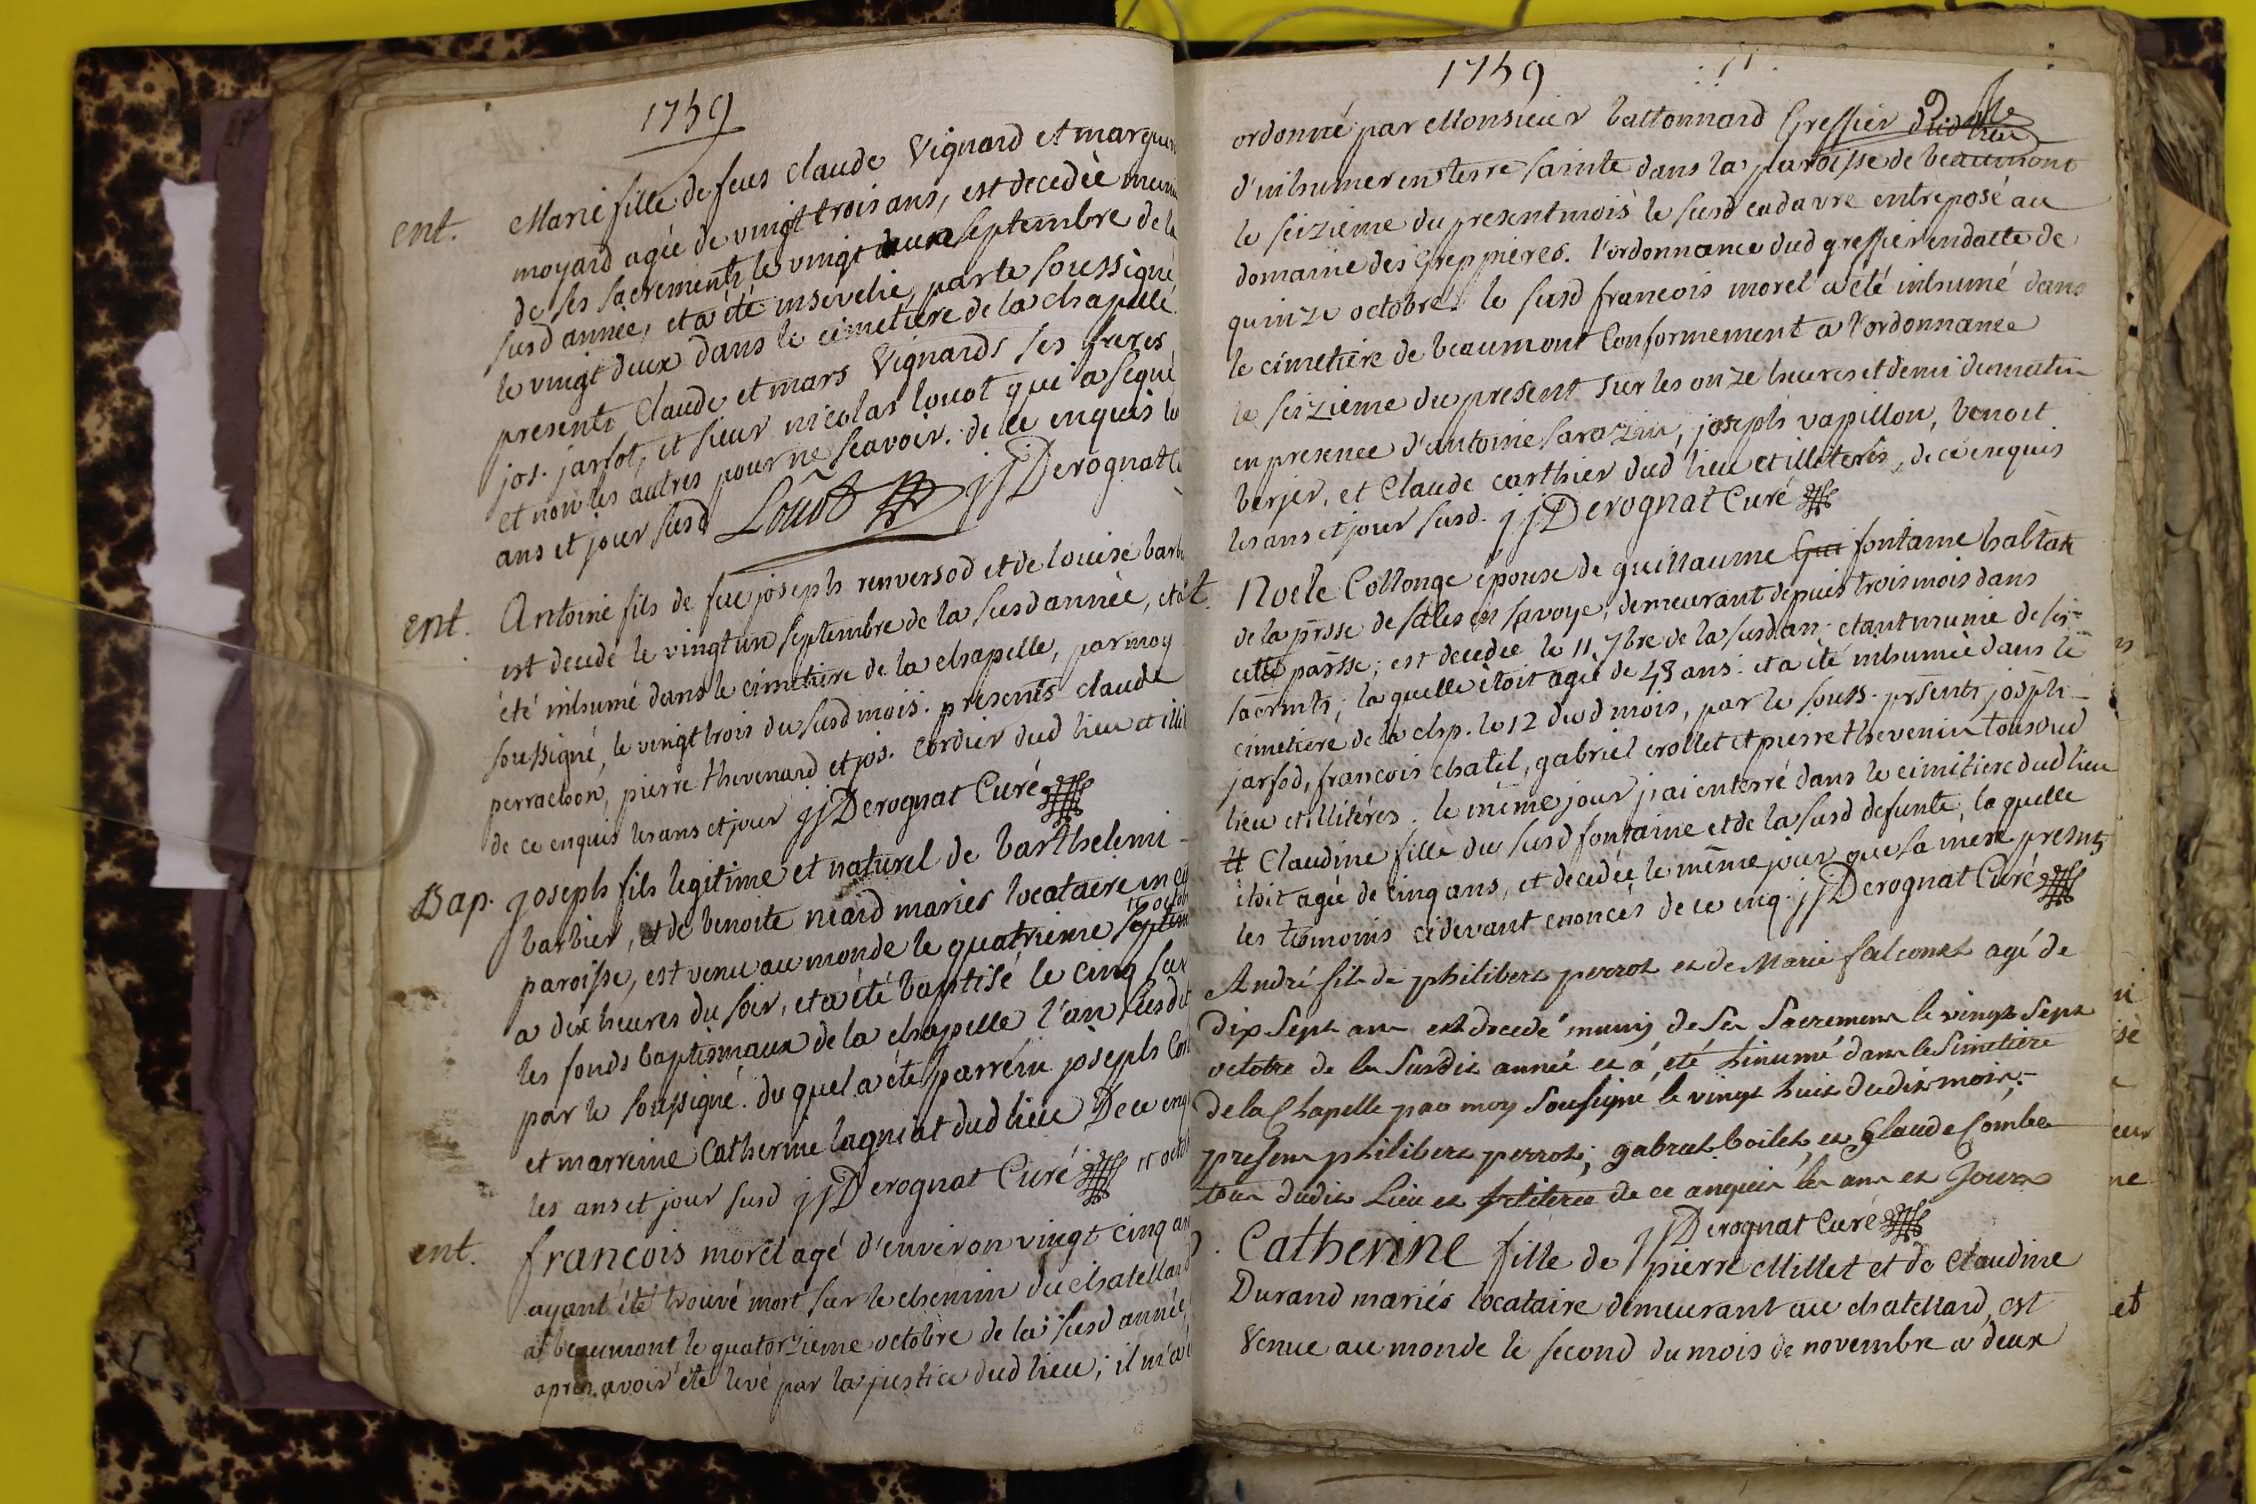 1759
ent. Marie fille de feus claude Vignard et margue
moyard agée de vingt trois ans, est decedée munie
de ses sacrements le vingt deux septembre de la
susd année, et a été ensevelie, par le soussigné
le vingt deux dans le cimetiere de la chapelle.
presents Claude et mars Vignards ses freres
jos. jarfot, et sieur nicolas louot qui a signé
et non les autres pour ne scavoir. de ce enquis le
ans et jour susd Louot jjDerognat C
ent. Antoine fils de feu joseph renversod et de louise barb
est decedé le vingt un septembre de la susd année, et a
été inhumé dans le cimetiere de la chapelle, par moy
soussigné, le vingt trois du susd mois. presents claude
perrachon, pierre thevenard et jos. cordier dud lieu et illit
de ce enquis les ans et jour jjDerognat Curé
Bap. joseph fils legitime et naturel de barthelemi
barbier, et de benoite niard mariés locataire en ce
paroisse, est venu au monde le quatrieme septem
a dix heures du soir, et a été baptisé le cinq sur
les fonds baptismaux de la chapelle l'an susdit
par le soussigné. du quel a été parrein joseph Cor
et marreine Catherine lagniat dud lieu De ce enq
les ans et jour susd jjDerognat Curé 11 octob
ent. francois morel agé d'environ vingt cinq ans
ayant été trouvé mort sur le chemin du chatellard
a beaumont le quatorzieme octobre de la susd année,
apres avoir été levé par la justice dud lieu; il m'a é
1759
ordonné par Monsieur battonnard Greffier dud lieu
d'inhumer en terre sainte dans la paroisse de beaumont
le seizieme du present mois le susd cadavre entreposé au
domaine des Greppieres. l'ordonnance dud greffier en datte de
quinze octobre. le susd francois morel a été inhumé dans
le cimetiere de beaumont Conformement a l'ordonnance
le seizieme du present sur les onze heures et demi du matin
en presence d'antoine sarazin, joseph vapillon, benoit
berjer, et Claude carthier dud lieu et illiterés, de ce enquis
les ans et jour susd. jjDerognat Curé
t. Noele Collonge épouse de guillaume fontaine habtate
de la prsse de sales en savoye, demeurant depuis trois mois dans
cette parsse; est decedée le 11 7bre de la susd an. etant munie de ses
sacrmts; la quelle étoit agée de 48 ans. et a été inhumée dans le
cimetiere de la chp. le 12 dud mois, par le souss. prsents joseph
jarfod, francois chatel, gabriel crollet et pierre thevenin tous dud
lieu et illitérés. le même jour j'ai enterré dans le cimitiere dud lieu
# Claudine fille du susd fontaine et de la susd defunte, la quelle
étoit agée de cinq ans, et decedée le même jour que sa mere presnts
les temoins cidevant enoncés de ce enq. jjDerognat Curé
André fils de philibert perrot et de Marie falconet agé de
dix Sept ans est decedé munis de Ses Sacremens le vingt Sept
octobre de la Susdit année et a été hinumé dans le Simetiere
de la Chapelle par moy Sousigné le vingt huit dudit mois;
presens philibert perrot; gabriel boilet et Glaude Combet
tous dudit Lieu et de ce anquis les ans et Jours
jjDerognat Curé
Catherine fille de pierre Millet et de Claudine
Durand mariés locataire demeurant au chatellard, est
Venue au monde le second du mois de novembre a deux